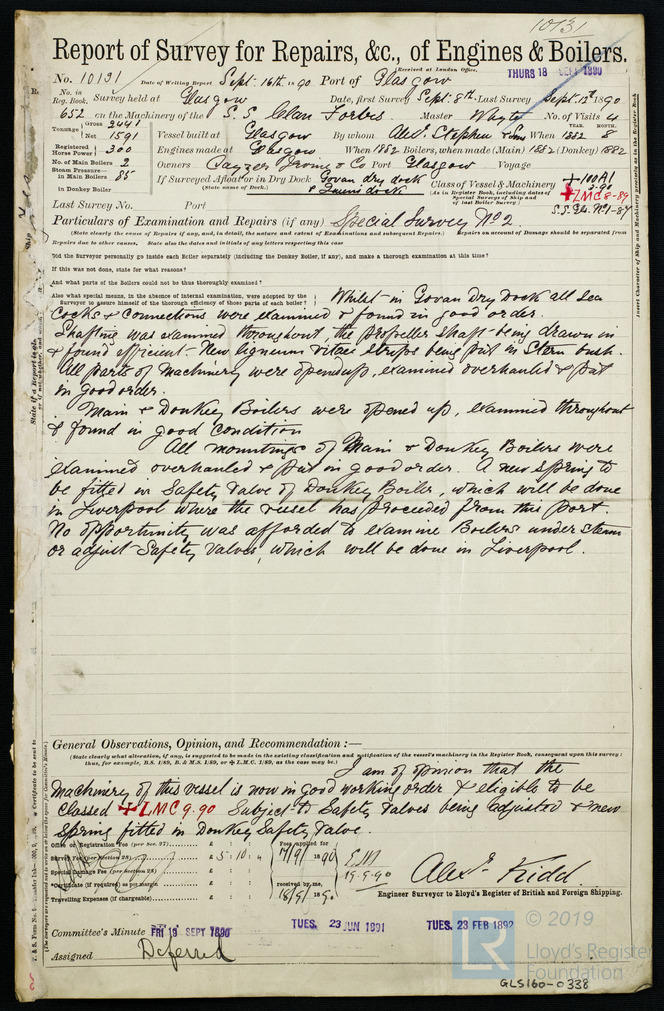 10131
Report of Survey for Repairs, &c., of Engines & Boilers.
(Received at London Office,
No. 10131 Date of Writing Report Sept. 16th 1890 Port of Glasgow THURS 18 SEPT 1890
No. in Reg. Book. Survey held at Glasgow Date, first Survey Sept. 8th Last Survey Sept. 12th 1890
652 on the Machinery of the S.S. Clan Forbes Master Whyte No. of Visits 4
Tonnage Gross 2441 YEAR. MONTH.
Net 1591 Vessel built at Glasgow By whom Alex. Stephen & Sons When 1882 8
Registered Horse Power 300 Engines made at Glasgow When 1882 Boilers, when made (Main) 1882 (Donkey) 1882
No. of Main Boilers 2 Owners Cayzer Irvine & Co Port Glasgow Voyage
Steam Pressure in Main Boilers 85 If Surveyed Afloat or in Dry Dock Govan dry dock Class of Vessel & Machinery +100A1
in Donkey Boiler (State name of Dock.) & Queens dock (As in Register Book, including dates of Special Surveys of Ship and of last Boiler Survey) 3-90
+LMC 8-89
S.S. Gls. No1-87
Last Survey No. Port
Particulars of Examination and Repairs (if any) Special Survey No 2.
(State clearly the cause of Repairs, if any, and, in detail, the nature and extent of Examinations and subsequent Repairs.) Repairs on account of Damage should be separated from
Repairs due to other causes. State also the dates and initials of any letters respecting this case
Did the Surveyor personally go inside each Boiler separately (including the Donkey Boiler, if any), and make a thorough examination at this time?
If this was not done, state for what reasons?
And what parts of the Boilers could not be thus thoroughly examined?
Also what special means, in the absence of internal examination, were adopted by the Surveyor to assure himself of the thorough efficiency of those parts of each boiler? Whilst in Govan Dry Dock all Sea
Cocks & Connections were examined & found in good order.
Shafting was examined throughout, the propeller shaft being drawn in
& found efficient - New lignum vitae strips being put in Stern bush.
All parts of Machinery were opened up, examined overhauled & put
in good order.
Main & Donkey Boilers were opened up, examined throughout
& found in good condition
All mountings of Main & Donkey Boilers were
examined overhauled & put in good order. A new spring to
be fitted in Safety Valve of Donkey Boiler, which will be done
in Liverpool where the vessel has proceeded from this port.
No opportunity was afforded to examine Boilers under steam
or adjust Safety Valves, which will be done in Liverpool.
General Observations, Opinion, and Recommendation :—
(State clearly what alteration, if any, is suggested to be made in the existing classification and notification of the vessel's machinery in the Register Book, consequent upon this survey:
thus, for example, B.S. 1/89, B. & M.S. 1/89, or + L.M.C. 1/89, as the case may be.)
I am of opinion that the
Machinery of this vessel is now in good working order & eligible to be
Classed +LMC 9.90 Subject to Safety Valves being adjusted & new
Spring fitted in Donkey Safety Valve.
Office or Registration Fee (per Sec. 27) £ : : Fees applied for
Survey Fee (per Section 28) £ 5 : 10 : 17/9/1890
Special Damage Fee (per Section 28) £ : : 19-9-90
Certificate (if required) as per margin £ : : received by me,
Travelling Expenses (if chargeable) £ : : 18/9/1890
Alex. Kidd
Engineer Surveyor to Lloyd's Register of British and Foreign Shipping.
Committee's Minute FRI 19 SEPT 1890 TUES. 23 JUN 1891 TUES. 23 FEB 1892
Assigned Deferred
LR © 2019
Lloyd's Register
Foundation
GLS160-0338